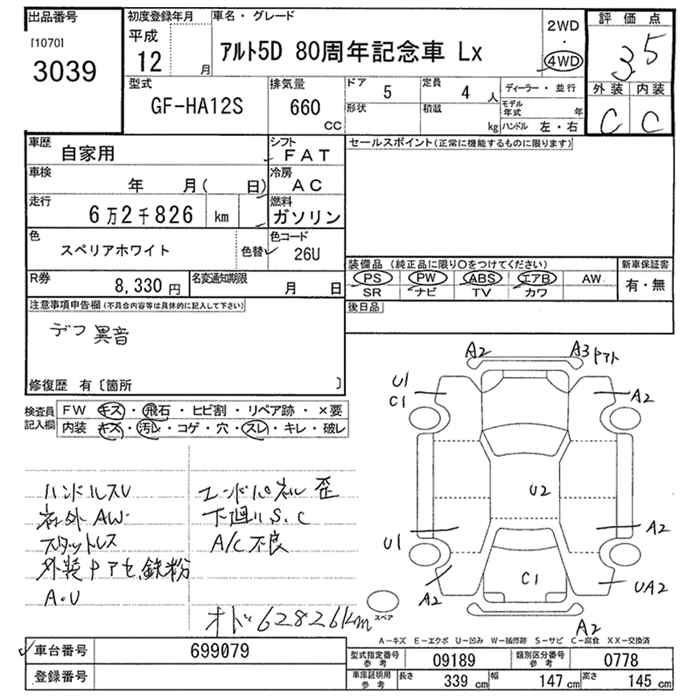 出品番号
[1070]
3039
初度登録年月
平成
12 月
車名・グレード
アルト5D 80周年記念車 Lx
2WD
・
4WD
評価点
3.5
外装 内装
C C
型式
GF-HA12S
排気量
660
CC
ドア 5
定員 4 人
形状
積載 kg
ディーラー・並行
モデル年式 年
ハンドル 左・右
車歴
自家用
シフト
FAT
車検
年 月( 日)
冷房
AC
走行
6万2千826 km
燃料
ガソリン
色
スペリアホワイト
色替
色コード
26U
R券
8,330円
名変通知期限
月 日
セールスポイント(正常に機能するものに限ります)
装備品 (純正品に限り○をつけてください)
PS PW ABS エアB AW
SR ナビ TV カワ
新車保証書
有・無
後日品
注意事項申告欄(不具合内容等は具体的に記入して下さい)
デフ異音
修復歴 有〔箇所 〕
検査員
記入欄
FW キズ・飛石・ヒビ割・リペア跡・×要
内装 キズ・汚レ・コゲ・穴・スレ・キレ・破レ
ハンドルスレ
社外AW
スタットレス
外装中アセ、鉄粉
A・U
エンドパネル歪
下廻りS、C
A/C不良
オド62826km
A2
A3
U1
C1
A2
U2
U1
A2
A2
C1
UA2
A2
スペア
A-キズ E-エクボ U-凹み W-補修跡 S-サビ C-腐食 XX-交換済
車台番号
699079
登録番号
型式指定番号
参考
09189
類別区分番号
参考
0778
車庫証明用
参考
長さ 339 cm
幅 147 cm
高さ 145 cm